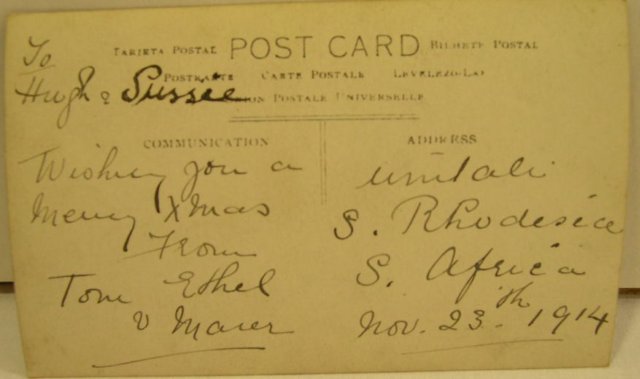 To
Hugh & Sussie
TARJETA POSTAL POST CARD BILHETE POSTAL
POSTKARTE CARTE POSTALE LEVELEZO-LAP
UNION POSTALE UNIVERSELLE
COMMUNICATION
ADDRESS
Wishing you a
Merry Xmas
From
Tom Ethel
&
umtali
S. Rhodesia
S. Africa
Nov. 23th 1914